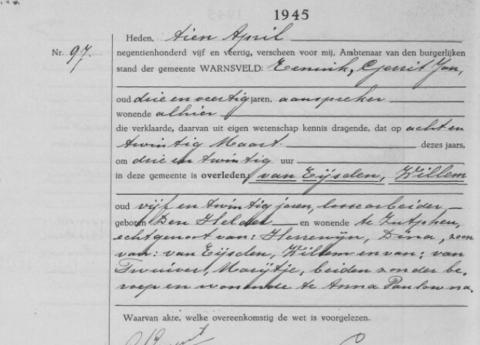 1945
Heden, tien April
Nr. 97. negentienhonderd vijf en veertig, verscheen voor mij, Ambtenaar van den burgerlijken
stand der gemeente WARNSVELD: Eenink, Gerrit Jan,
oud drie en veertig jaren, aanspreker
wonende alhier
die verklaarde, daarvan uit eigen wetenschap kennis dragende, dat op acht en
twintig Maart dezes jaars,
om drie en twintig uur
in deze gemeente is overleden: van Eijsden, Willem
oud vijf en twintig jaren, losse arbeider
geboren Den Helder en wonende te Zutphen,
echtgenoot van: Herrewijn, Dina, zoon
van: van Eijsden, Willem en van: van
Twuiver, Marijtje, beiden zonder be-
roep en wonende te Anna Paulowna.
Waarvan akte, welke overeenkomstig de wet is voorgelezen.